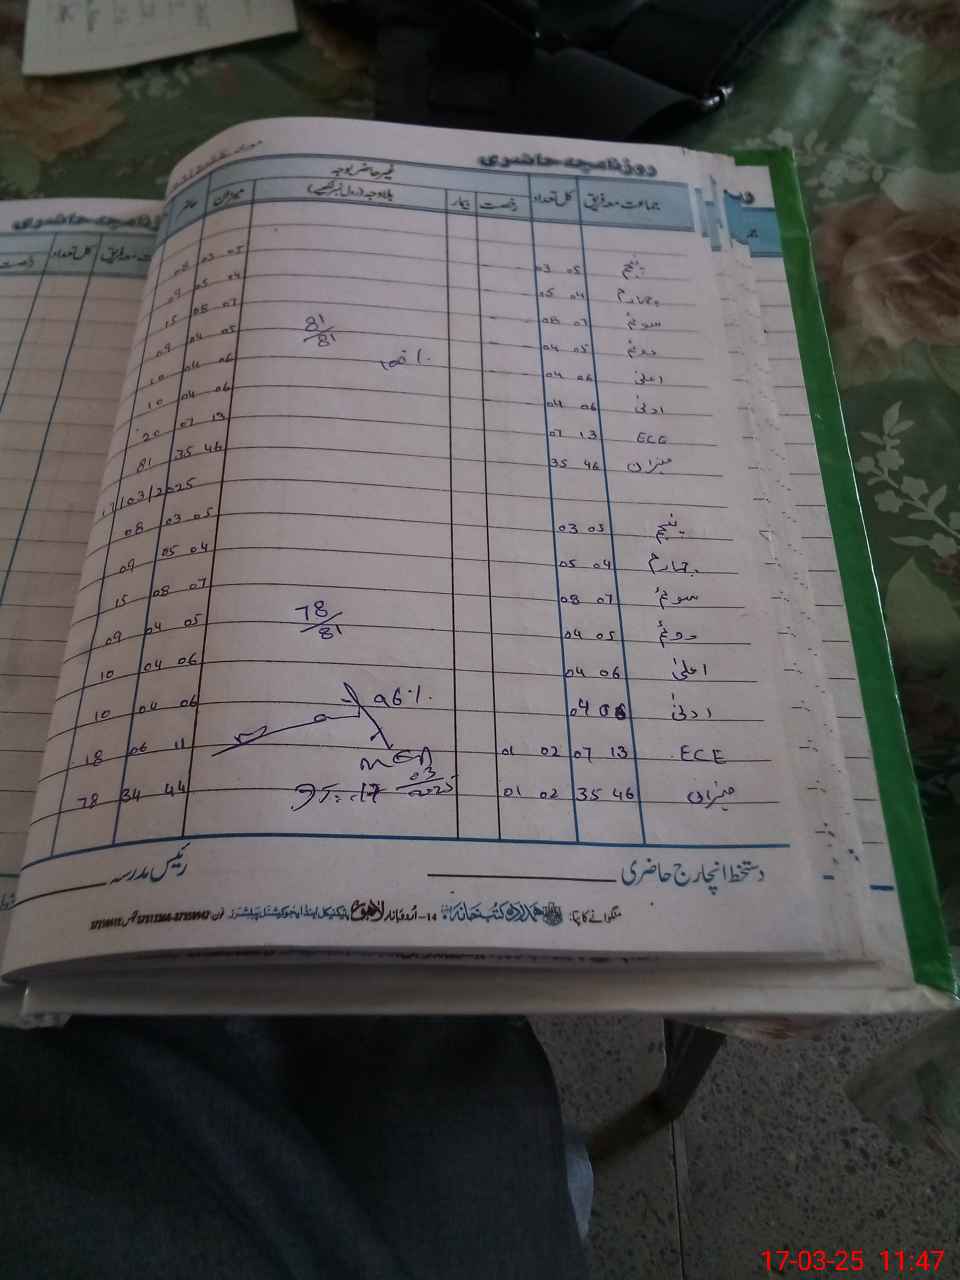 روزنامچہ حاضری
جماعت معہ فریق کل تعداد رخصت بیمار غیر حاضر بوجہ بلا وجہ (رول نمبر لکھیے) میزان حاضر
پنجم 05 03 05 03 08
چہارم 04 05 04 05 09
سوئم 07 08 07 08 15
دوئم 05 04 05 04 09
81/81
اعلیٰ 06 04 06 04 10
100%
ادنیٰ 06 04 06 04 10
ECE 13 07 13 07 20
میزان 46 35 46 35 81
17/03/2025
پنجم 05 03 05 03 08
چہارم 04 05 04 05 09
سوئم 07 08 07 08 15
78/81
دوئم 05 04 05 04 09
اعلیٰ 06 04 06 04 10
96%
ادنیٰ 06 04 06 04 10
ECE 13 07 02 01 11 06 18
میزان 46 35 02 01 44 34 78
MEA
17 03 2025
دستخط انچارج حاضری
رئیس مدرسہ
منگوانے کا پتا: ہمدرد کتب خانہ 14-اُردو بازار لاہور
روزنامچہ حاضری
کل تعداد
رخصت
17-03-25 11:47